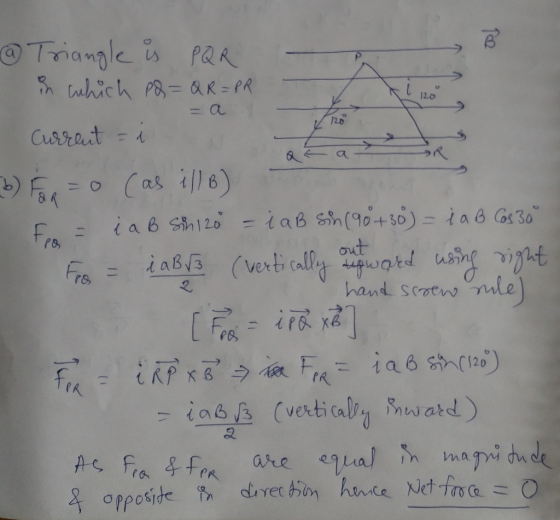 (a) Triangle is PQR
in which PQ = QR = PR
= a
Current = i
B⃗
P
i
120°
120°
Q ← a → R
(b) F_QR = 0 (as i || B)
F_PQ = i a B sin 120° = i a B sin (90° + 30°) = i a B Cos 30°
F_PQ = i a B √3 / 2 (vertically outward using right
hand screw rule)
[ F⃗_PQ = i P⃗Q × B⃗ ]
F⃗_PR = i R⃗P × B⃗ ⇒ F_PR = i a B sin (120°)
= i a B √3 / 2 (vertically inward)
As F_PQ & F_PR are equal in magnitude
& opposite in direction hence Net force = 0